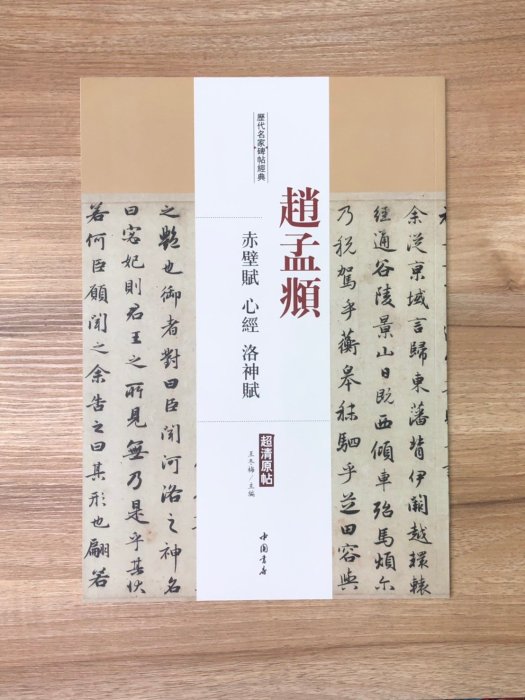 歷代名家碑帖經典
趙孟頫
赤壁賦 心經 洛神賦
超清原帖
王冬梅/主編
中国書店
余從京域言歸東藩背伊闕越轘轅
經通谷陵景山日既西傾車殆馬煩尔
乃稅駕乎蘅皋秣駟乎芝田容與
之艷也御者對曰臣聞河洛之神名
曰宓妃則君王之所見無乃是乎其狀
若何臣願聞之余告之曰其形也翩若